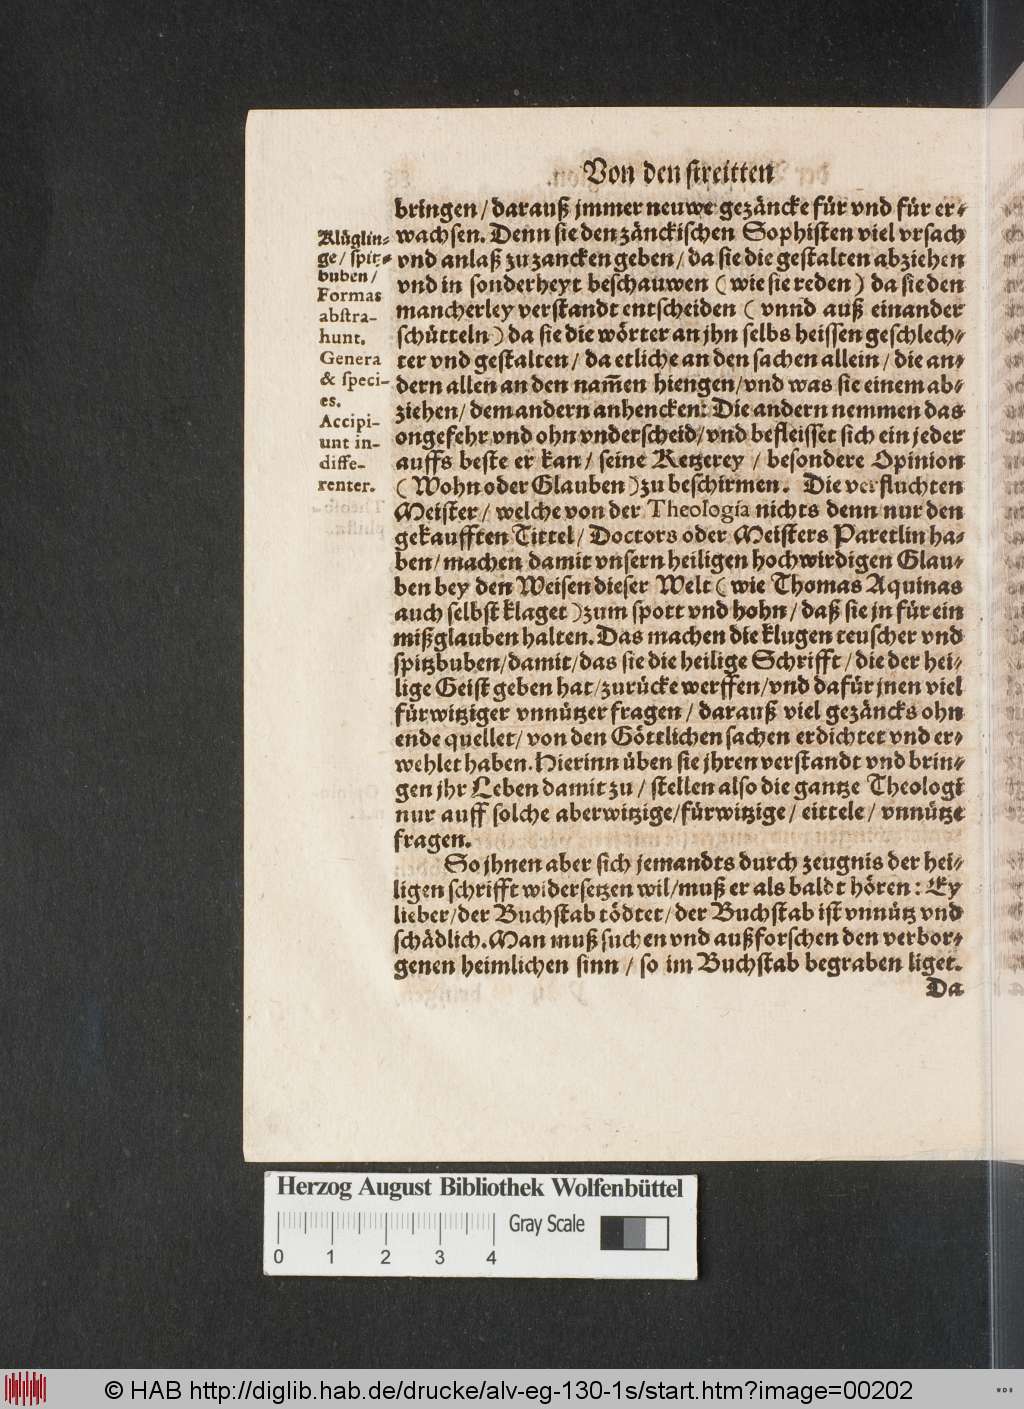 Von den streitten
bringen / darauß jmmer neuwe gezäncke für vnd für er-
wachsen. Denn sie den zänckischen Sophisten viel vrsach
vnd anlaß zu zancken geben / da sie die gestalten abziehen
vnd in sonderheyt beschauwen ( wie sie reden ) da sie den
mancherley verstandt entscheiden ( vnnd auß einander
schütteln ) da sie die wörter an jhn selbs heissen geschlech-
ter vnd gestalten / da etliche an den sachen allein / die an-
dern allen an den nam̄en hiengen / vnd was sie einem ab-
ziehen / dem andern anhencken: Die andern nemmen das
ongefehr vnd ohn vnderscheid / vnd befleisset sich ein jeder
auffs beste er kan / seine Ketzerey / besondere Opinion
( Wohn oder Glauben ) zu beschirmen. Die verfluchten
Meister / welche von der Theologia nichts denn nur den
gekaufften Tittel / Doctors oder Meisters Paretlin ha-
ben / machen damit vnsern heiligen hochwirdigen Glau-
ben bey den Weisen dieser Welt ( wie Thomas Aquinas
auch selbst klaget ) zum spott vnd hohn / daß sie jn für ein
mißglauben halten. Das machen die klugen teuscher vnd
spitzbuben / damit / das sie die heilige Schrifft / die der hei-
lige Geist geben hat / zurücke werffen / vnd dafür jnen viel
fürwitziger vnnützer fragen / darauß viel gezäncks ohn
ende quellet / von den Göttlichen sachen erdichtet vnd er-
wehlet haben. Hierinn üben sie jhren verstandt vnd brin-
gen jhr Leben damit zu / stellen also die gantze Theologi
nur auff solche aberwitzige / fürwitzige / eittele / vnnütze
fragen.
So jhnen aber sich jemandts durch zeugnis der hei-
ligen schrifft widersetzen wil / muß er als baldt hören : Ey
lieber / der Buchstab tödtet / der Buchstab ist vnnütz vnd
schädlich. Man muß suchen vnd außforschen den verbor-
genen heimlichen sinn / so im Buchstab begraben liget.
Da
Klüglin-
ge / spitz-
buben /
Formas
abstra-
hunt.
Genera
& speci-
es.
Accipi-
unt in-
diffe-
renter.
Herzog August Bibliothek Wolfenbüttel
0 1 2 3 4
Gray Scale
© HAB http://diglib.hab.de/drucke/alv-eg-130-1s/start.htm?image=00202